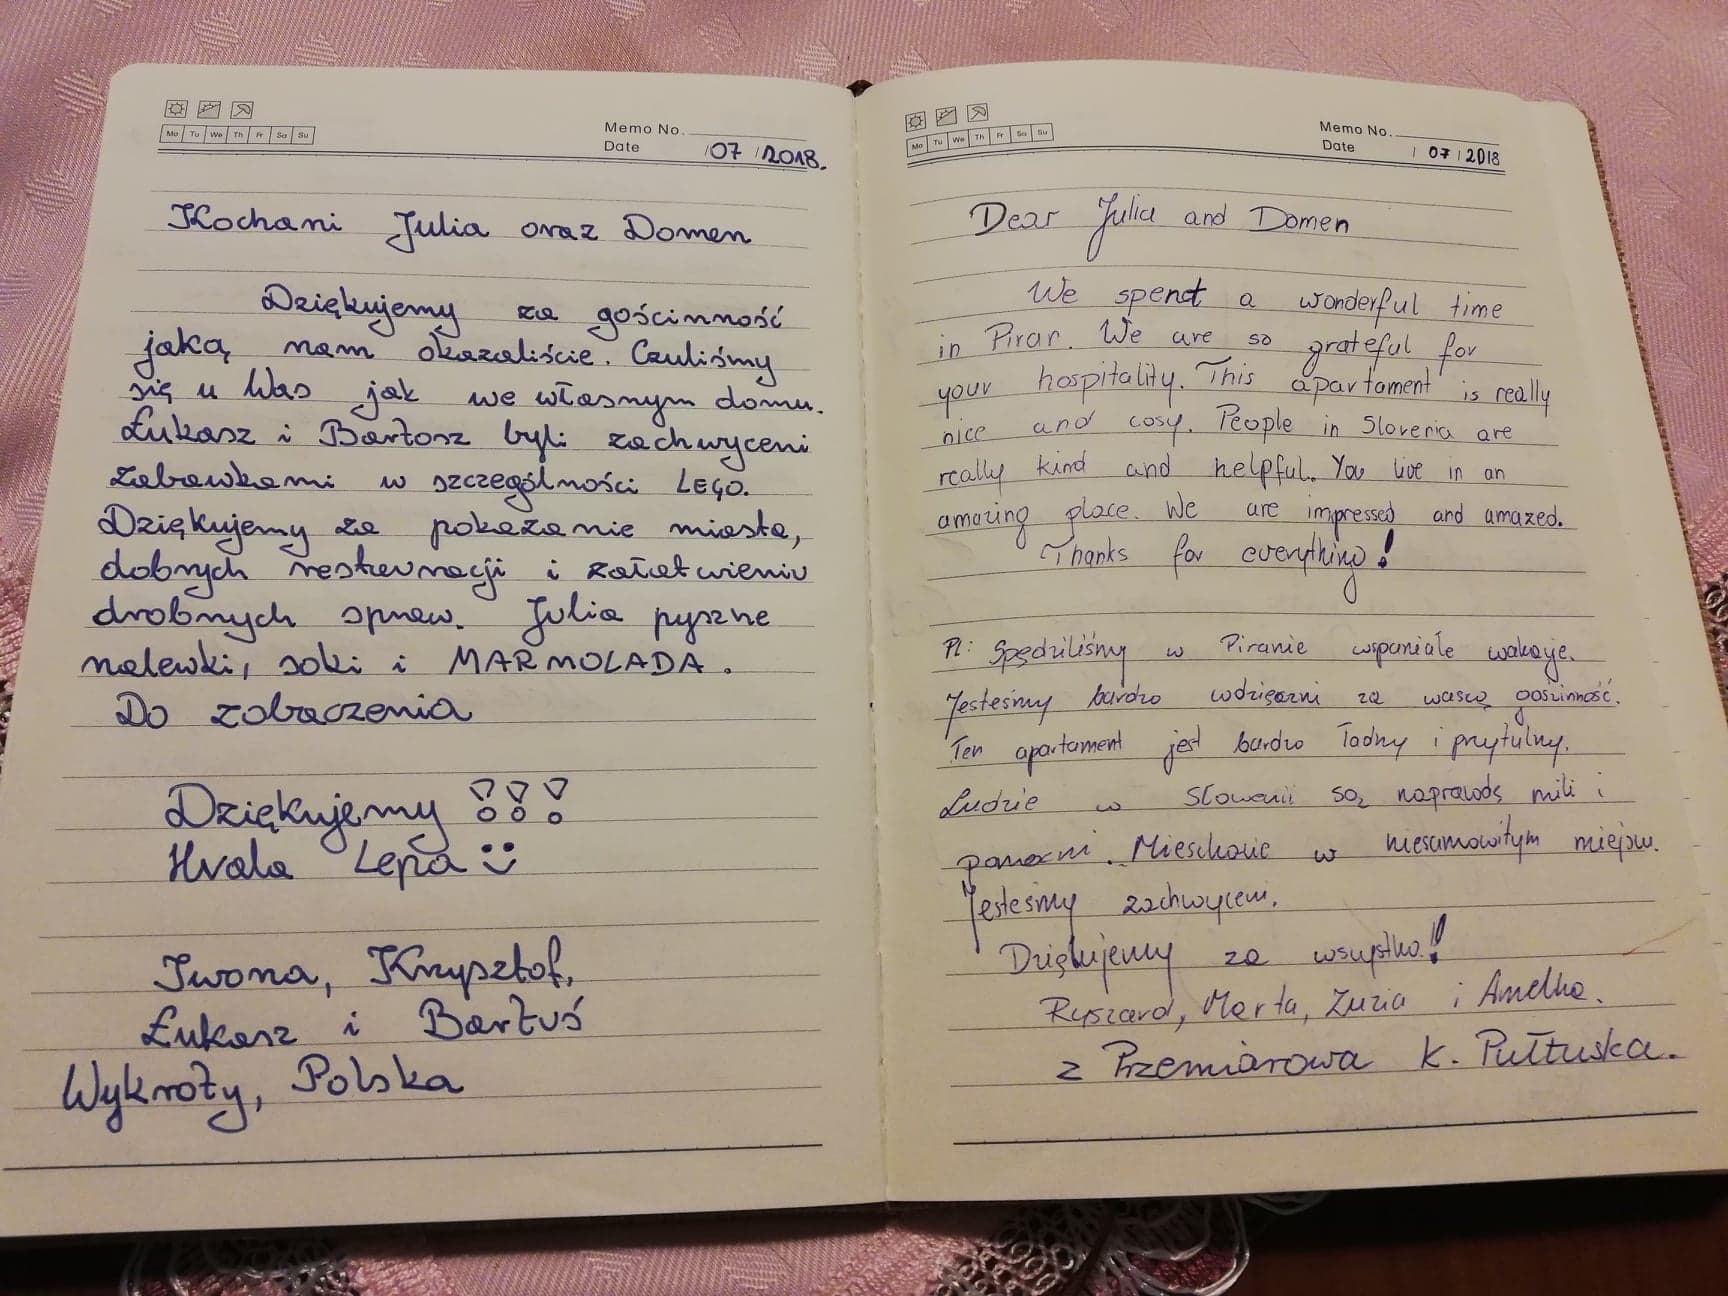 Mo Tu We Th Fr Sa Su
Memo No.
Date /07 /2018.
Kochani Julia oraz Domen
Dziękujemy za gościnność
jaką nam okazaliście. Czuliśmy
się u Was jak we własnym domu.
Łukasz i Bartosz byli zachwyceni
zabawkami w szczególności LEGO.
Dziękujemy za pokazanie miasta,
dobrych restauracji i załatwieniu
drobnych spraw. Julia pyszne
nalewki, soki i MARMOLADA.
Do zobaczenia
Dziękujemy !!!
Hvala Lepa :)
Iwona, Krzysztof,
Łukasz i Bartuś
Wykroty, Polska
Mo Tu We Th Fr Sa Su
Memo No.
Date / 07 / 2018
Dear Julia and Domen
We spend a wonderful time
in Piran. We are so grateful for
your hospitality. This apartament is really
nice and cosy. People in Slovenia are
really kind and helpful. You live in an
amazing place. We are impressed and amazed.
Thanks for everything!
Pl: Spędziliśmy w Piranie wspaniałe wakacje.
Jesteśmy bardzo wdzięczni za waszą gościnność.
Ten apartament jest bardzo ładny i przytulny.
Ludzie w Słowenii są naprawdę mili i
pomocni. Mieszkacie w niesamowitym miejscu.
Jesteśmy zachwyceni.
Dziękujemy za wszystko!
Ryszard, Marta, Zuzia i Amelka.
z Przemiarowa k. Pułtuska.